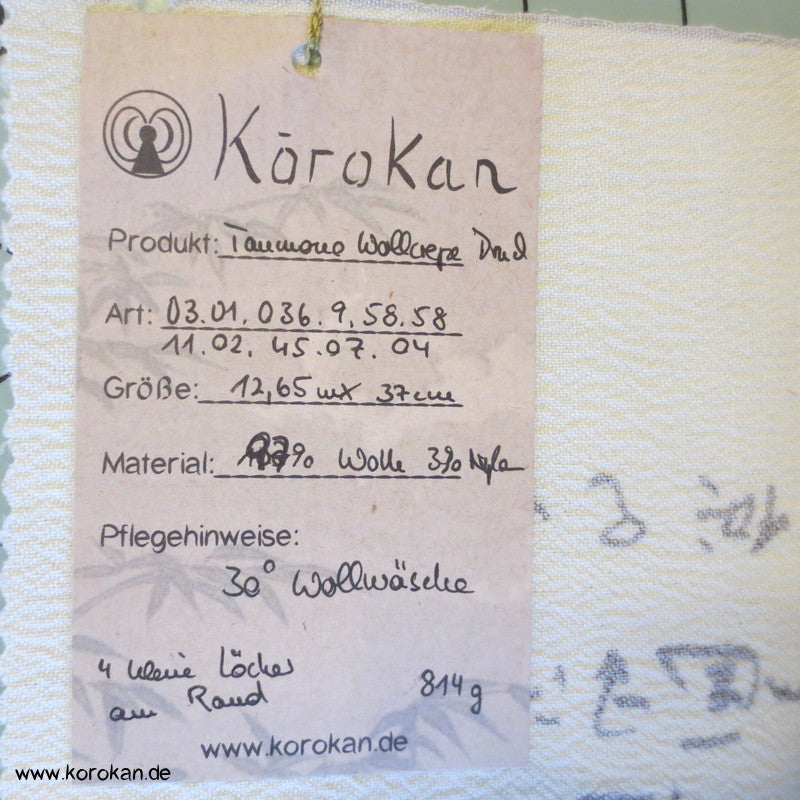 Kōrokan
Produkt: Tanmono Wollcrepe Druck
Art: 03.01.036.9.58.58
11.02.45.07.04
Größe: 12,65 m x 37 cm
Material: 97% Wolle 3% Nylon
Pflegehinweise:
30° Wollwäsche
4 kleine Löcher
am Rand
814 g
www.korokan.de
www.korokan.de